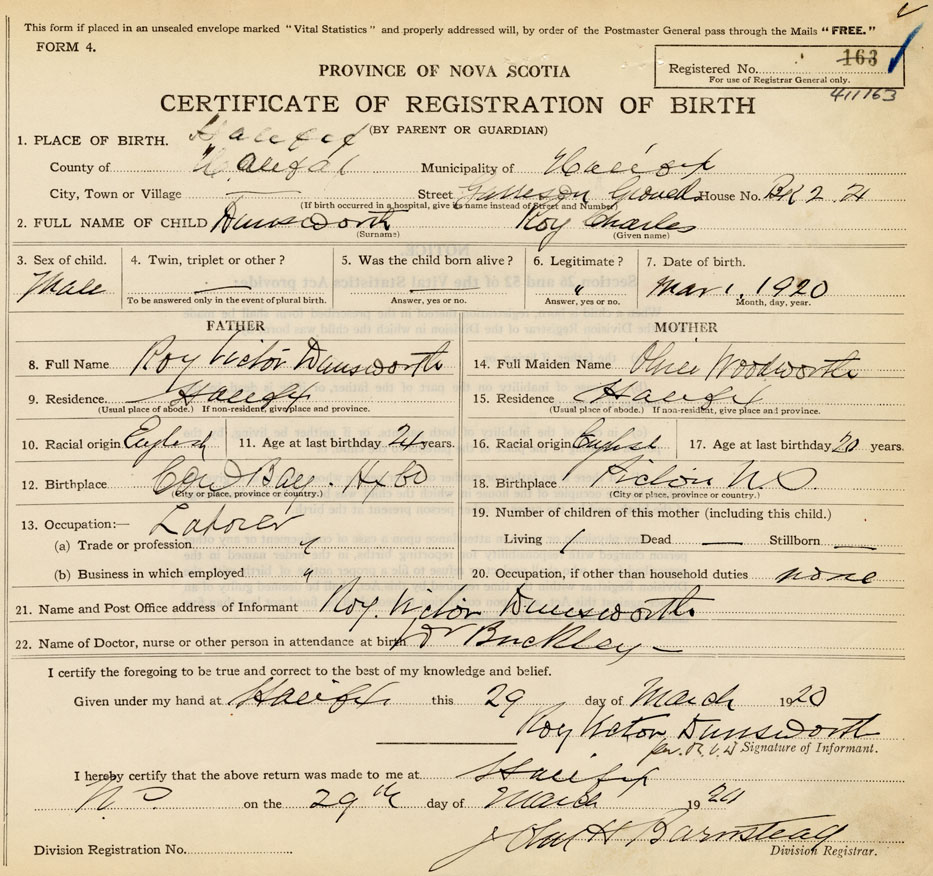 This form if placed in an unsealed envelope marked "Vital Statistics" and properly addressed will, by order of the Postmaster General pass through the Mails "FREE."
FORM 4.
Registered No. 163
For use of Registrar General only.
411163
PROVINCE OF NOVA SCOTIA
CERTIFICATE OF REGISTRATION OF BIRTH
(BY PARENT OR GUARDIAN)
1. PLACE OF BIRTH. Halifax
County of Halifax Municipality of Halifax
City, Town or Village — Street House No. 2. 21
(If birth occurred in a hospital, give its name instead of Street and Number)
2. FULL NAME OF CHILD Dunsworth Roy Charles
(Surname) (Given name)
3. Sex of child. 4. Twin, triplet or other? 5. Was the child born alive? 6. Legitimate? 7. Date of birth.
Male — — " Mar 1, 1920
To be answered only in the event of plural birth. Answer, yes or no. Answer, yes or no. Month, day, year.
FATHER MOTHER
8. Full Name Roy Victor Dunsworth 14. Full Maiden Name Olive Woodworth
9. Residence. Halifax 15. Residence Halifax
(Usual place of abode.) If non-resident, give place and province. (Usual place of abode.) If non-resident, give place and province.
10. Racial origin English 11. Age at last birthday 24 years. 16. Racial origin English 17. Age at last birthday 20 years.
12. Birthplace Cow Bay. Hfx Co 18. Birthplace Pictou N S
(City or place, province or country.) (City or place, province or country.)
13. Occupation:— Laborer 19. Number of children of this mother (including this child.)
(a) Trade or profession " Living 1 Dead — Stillborn —
(b) Business in which employed " 20. Occupation, if other than household duties none
21. Name and Post Office address of Informant Roy Victor Dunsworth
22. Name of Doctor, nurse or other person in attendance at birth Dr Buckley —
I certify the foregoing to be true and correct to the best of my knowledge and belief.
Given under my hand at Halifax this 29 day of March 1920
Roy Victor Dunsworth
Signature of Informant.
I hereby certify that the above return was made to me at Halifax
N S on the 29th day of March 1920
John H Barnstead
Division Registration No. Division Registrar.